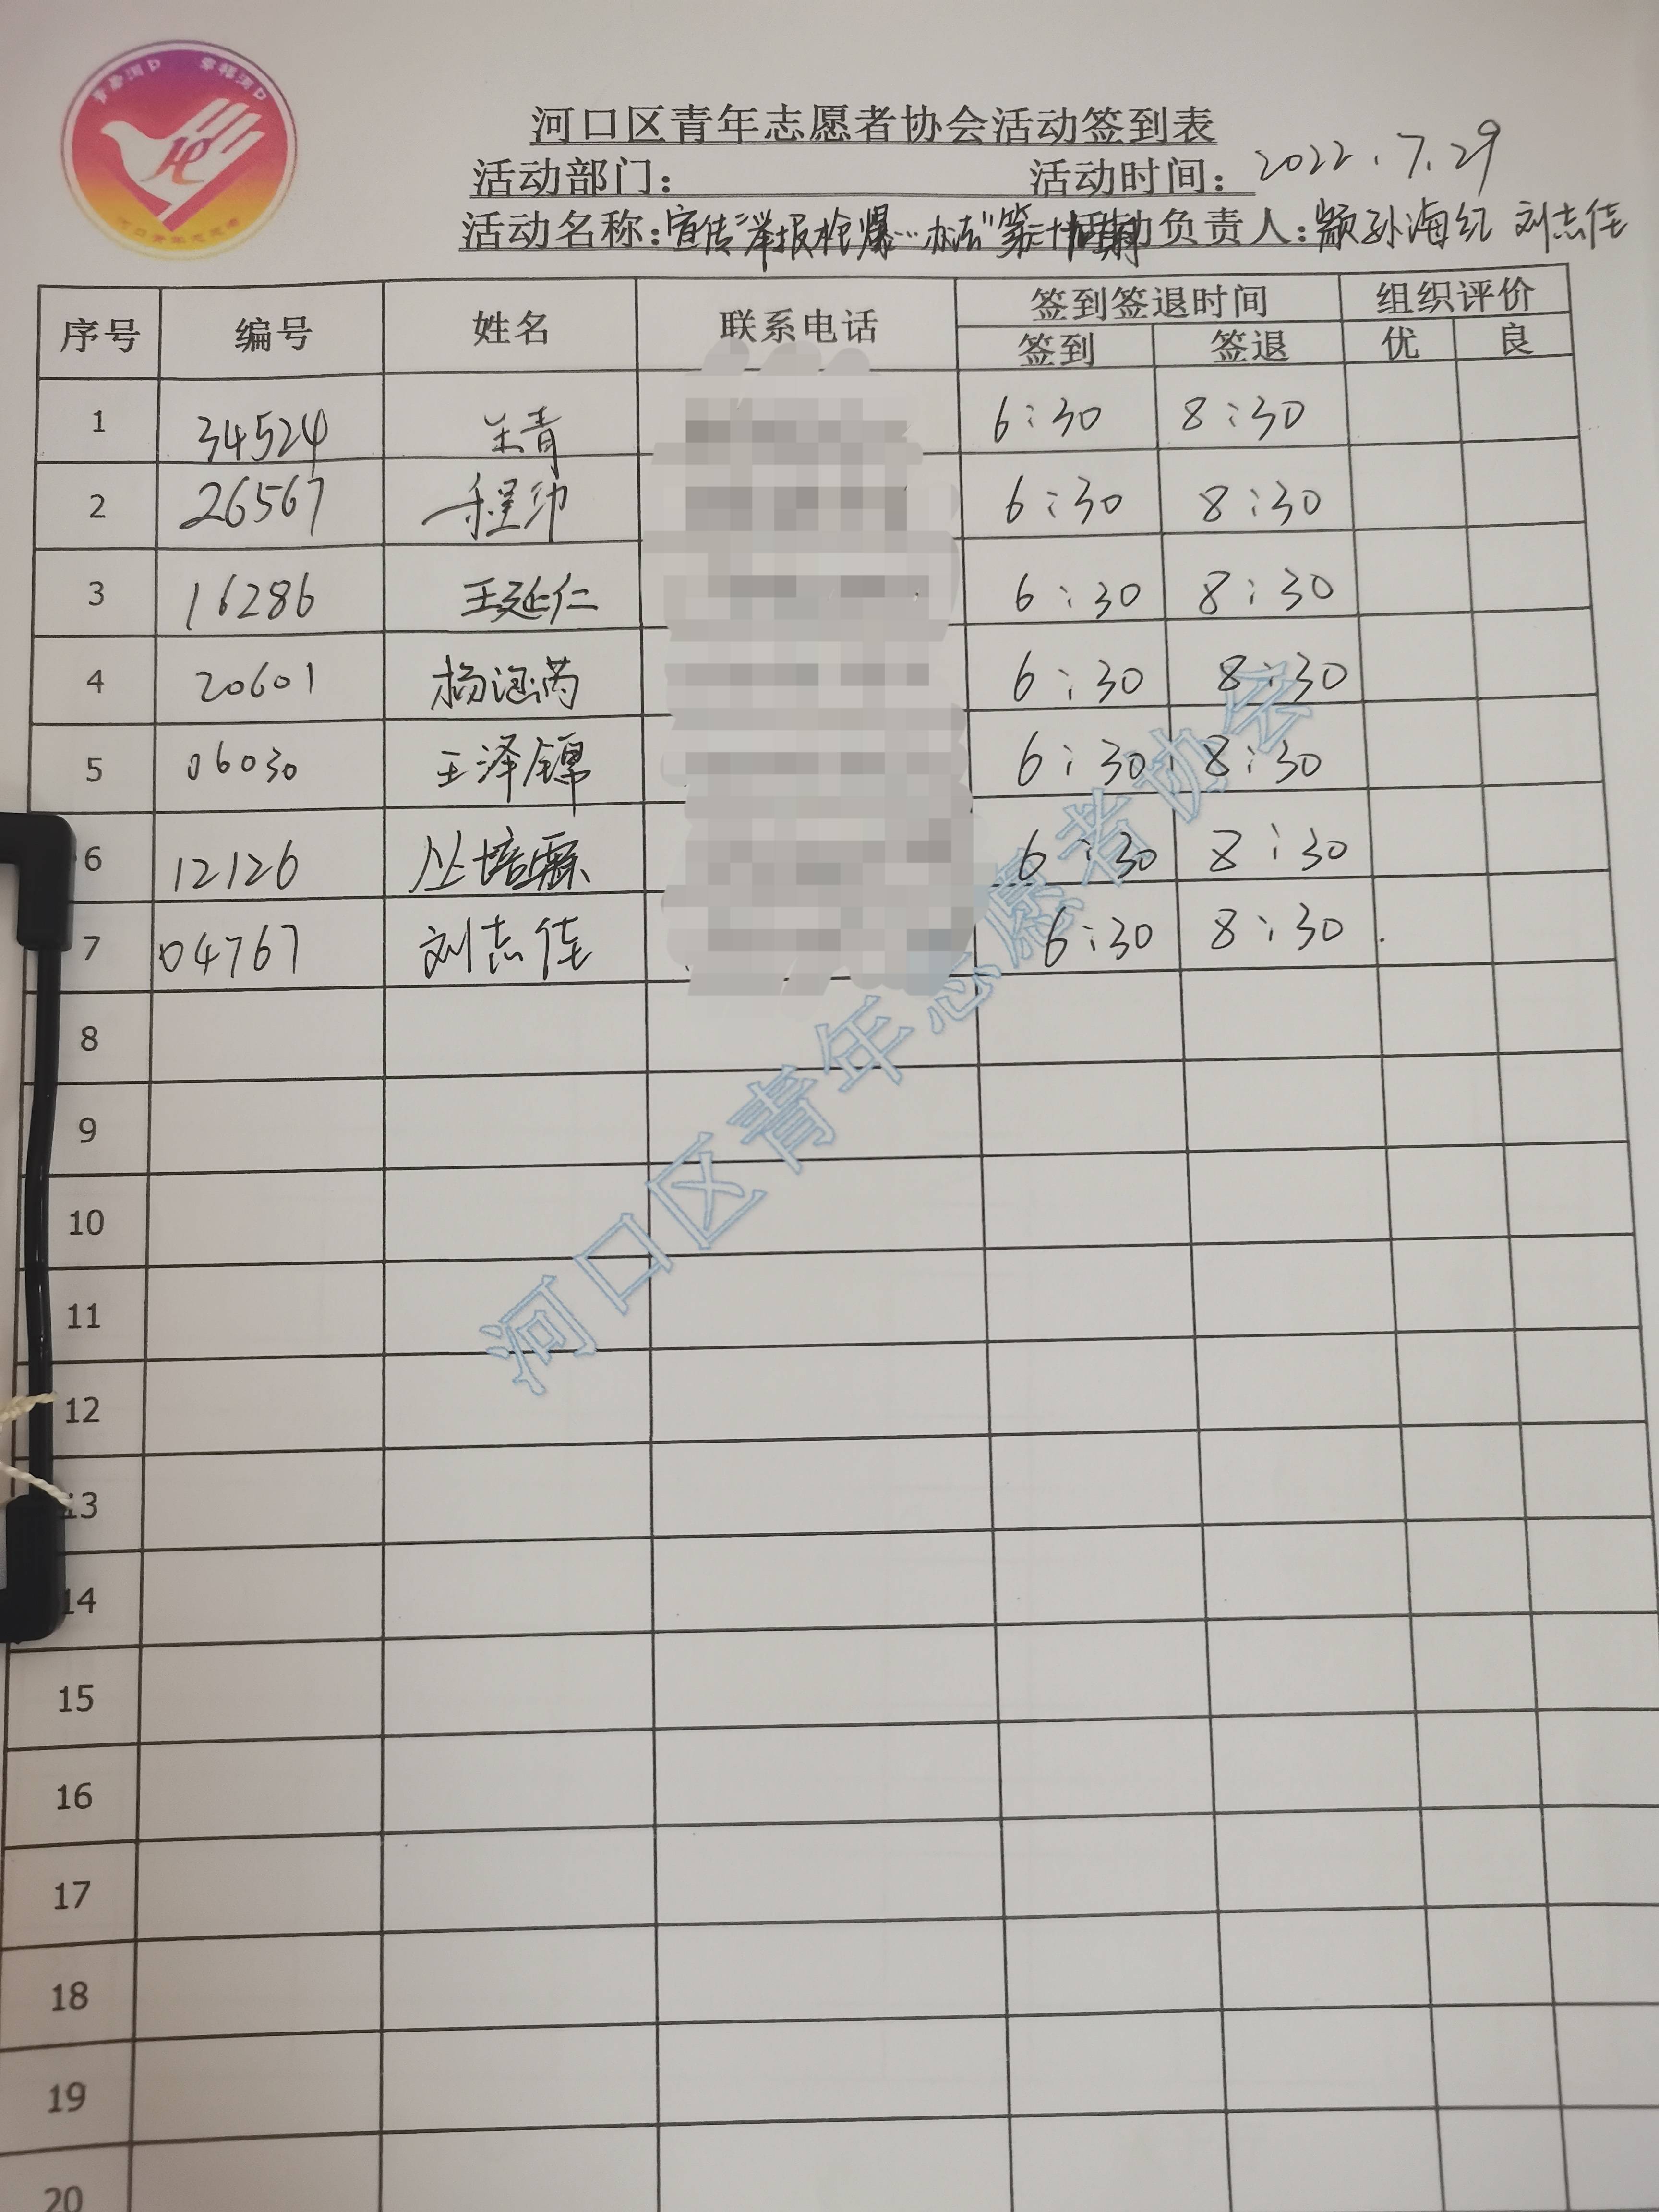 青春河口 幸福河口
河口青年志愿者
河口区青年志愿者协会活动签到表
活动部门: 活动时间: 2022.7.29
活动名称:宣传"举报枪爆…办法"第二十 活动负责人: 颛孙海纪 刘志佳
序号 编号 姓名 联系电话 签到签退时间 组织评价
签到 签退 优 良
1 34524 青 6:30 8:30
2 26567 程帅 6:30 8:30
3 16286 王延仁 6:30 8:30
4 20601 杨涵 6:30 8:30
5 06030 王泽锦 6:30 8:30
6 12126 丛培霖 6:30 8:30
7 04767 刘志佳 6:30 8:30
8
9
10
11
12
13
14
15
16
17
18
19
20
河口区青年志愿者协会